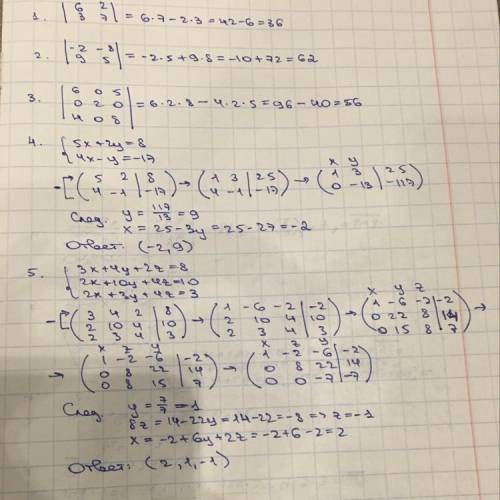 1. |6 2; 3 7| = 6·7-2·3=42-6=36
2. |-2 -8; 9 5| = -2·5+9·8=-10+72=62
3. |6 0 5; 0 2 0; 4 0 8| = 6·2·8-4·2·5=96-40=56
4. {5x+2y=8
4x-y=-17
(5 2 | 8; 4 -1 | -17) → (1 3 | 25; 4 -1 | -17) → x y (1 3 | 25; 0 -13 | -117)
След. y = 117/13 = 9
x = 25-3y=25-27=-2
Ответ: (-2,9)
5. {3x+4y+2z=8
2x+10y+4z=10
2x+3y+4z=3
(3 4 2 | 8; 2 10 4 | 10; 2 3 4 | 3) → (1 -6 -2 | -2; 2 10 4 | 10; 2 3 4 | 3) → x y z (1 -6 -2 | -2; 0 22 8 | 14; 0 15 8 | 7) →
→ x z y (1 -2 -6 | -2; 0 8 22 | 14; 0 8 15 | 7) → x z y (1 -2 -6 | -2; 0 8 22 | 14; 0 0 -7 | -7)
След. y = 7/7 = 1
8z = 14-22y=14-22=-8 => z=-1
x = -2+6y+2z=-2+6-2=2
Ответ: (2,1,-1)